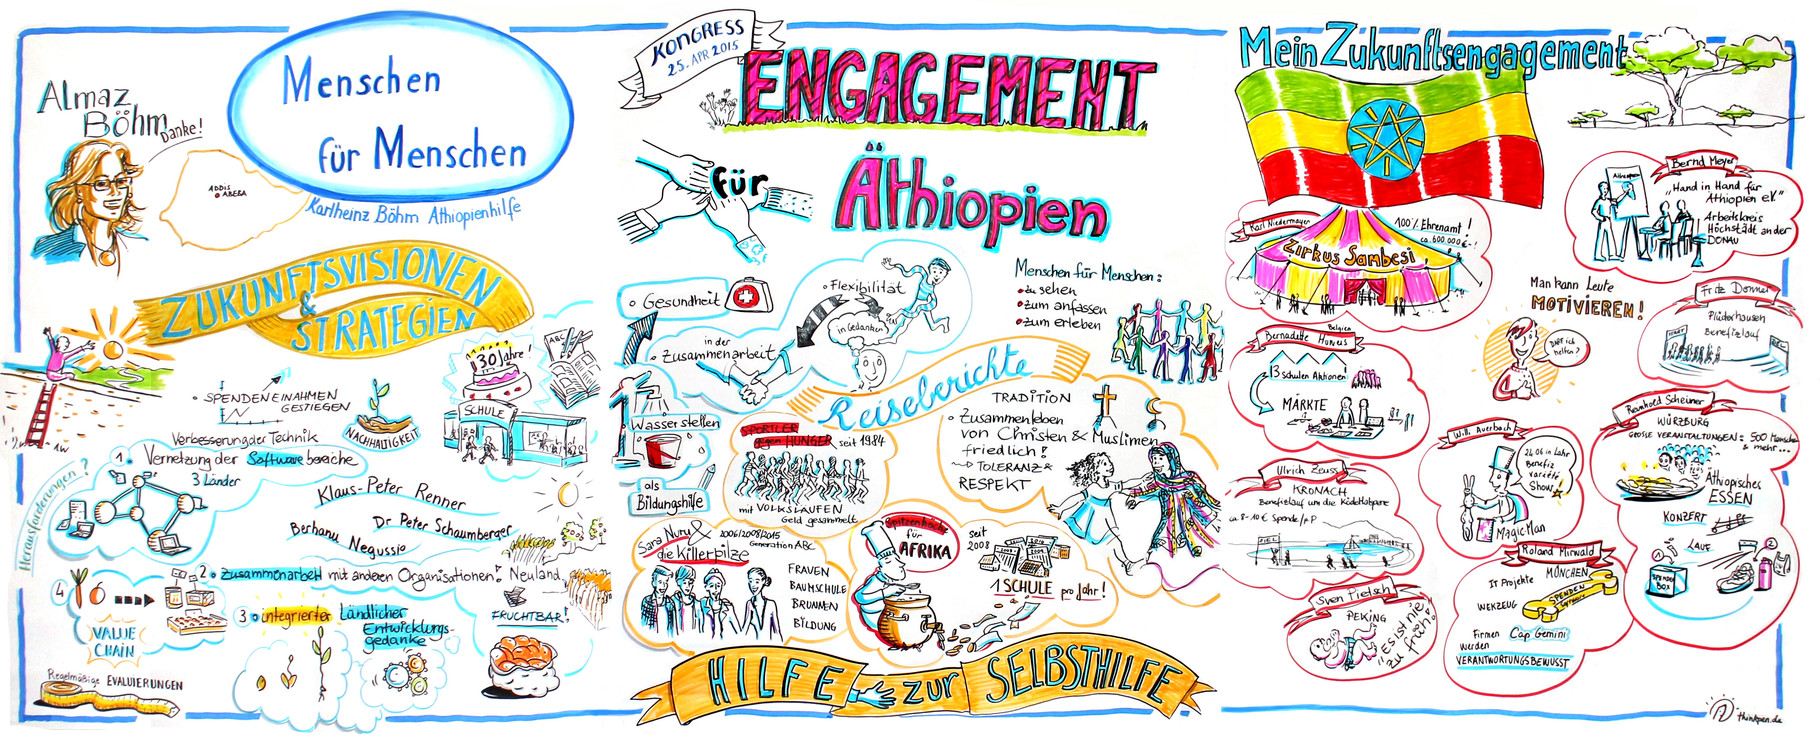 Almaz
Böhm
Danke!
ADDIS
ABEBA
Menschen
für Menschen
Karlheinz Böhm Äthiopienhilfe
ZUKUNFTSVISIONEN
&
STRATEGIEN
SPENDENEINAHMEN
GESTIEGEN
NACHHALTIGKEIT
30 Jahre!
ABC
SCHULE
Herausforderungen?
Verbesserung der Technik
1. Vernetzung der Softwarebereiche
3 Länder
Klaus-Peter Renner
Dr Peter Schaumberger
Berhanu Negussie
2. Zusammenarbeit mit anderen Organisationen!
Neuland
FRUCHTBAR!
3. integrierter Ländlicher
Entwicklungs-
gedanke
4
VALUE
CHAIN
Regelmäßige EVALUIERUNGEN
KONGRESS
25. APR 2015
ENGAGEMENT
für
Äthiopien
Gesundheit
Flexibilität
in Gedanken
in der
Zusammenarbeit
Menschen für Menschen:
zu sehen
zum anfassen
zum erleben
Reiseberichte
Wasserstellen
als
Bildungshilfe
SPORTLER
gegen HUNGER seit 1984
mit VOLKSLÄUFEN
Geld gesammelt
TRADITION
Zusammenleben
von Christen & Muslimen
friedlich!
TOLERANZ &
RESPEKT
Sara Nuru &
die Killerpilze
2006/2008/2015
Generation ABC
FRAUEN
BAUMSCHULE
BRUNNEN
BILDUNG
Spitzenköche
für
AFRIKA
seit
2008
1 SCHULE pro Jahr!
HILFE zur SELBSTHILFE
Mein Zukunftsengagement
Karl Niedermayer
100% Ehrenamt!
ca. 600.000 €-!
Zirkus Sambesi
Bernd Meyer
Äthiopien
„Hand in Hand für
Äthiopien e.V."
Arbeitskreis
Höchstädt an der
DONAU
Man kann Leute
MOTIVIEREN!
DARF ich
helfen?
Fritz Donner
Plüderhausen
Benefizlauf
START
ZIEL
Belgien
13 Schulen Aktionen
MÄRKTE
Ulrich Zeuss
KRONACH
ca. 8-10 € Spende/p.P
ZIEL
Willi Auerbach
24.06 in Lahr
Benefiz
varieté
Show!
MagicMan
Reinhold Scheiner
WÜRZBURG
GROSSE VERANSTALTUNGEN: 500 Menschen
& mehr...
Äthiopisches
ESSEN
KONZERT
LAUF
SPENDEN
BOX
Roland Mirwald
MÜNCHEN
IT Projekte
WEKZEUG
SPENDEN
Firmen Cap Gemini
werden
VERANTWORTUNGSBEWUSST
Sven Pietsch
PEKING
"Es ist nie
zu früh!"
thinkpen.de